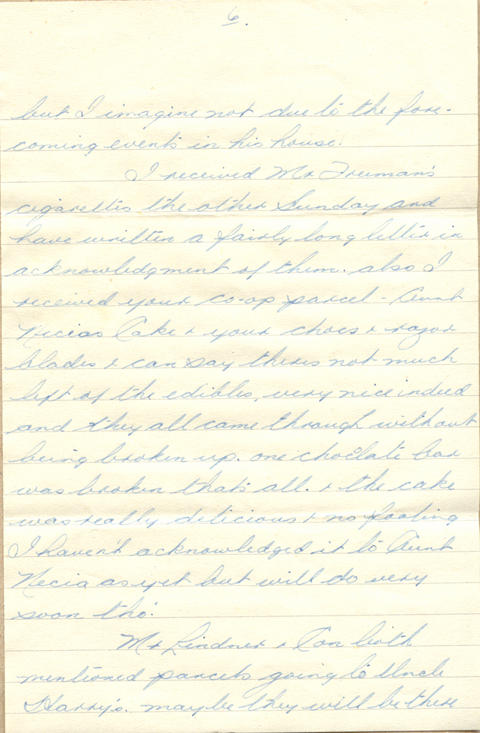 6.
but I imagine not due to the fore-
coming events in his house.
I received Mr Truman's
cigarettes the other Sunday and
have written a fairly long letter in
acknowledgment of them. also I
received your co-op parcel - Aunt
Necias Cake & your chocs & razor
blades & can say theres not much
left of the edibles, very nice indeed
and they all came through without
being broken up. one choclate bar
was broken that's all. & the cake
was really delicious & no fooling
I haven't acknowledged it to Aunt
Necia as yet but will do very
soon tho'.
Mr Lindner & Con both
mentioned parcels going to Uncle
Harry's. maybe they will be there